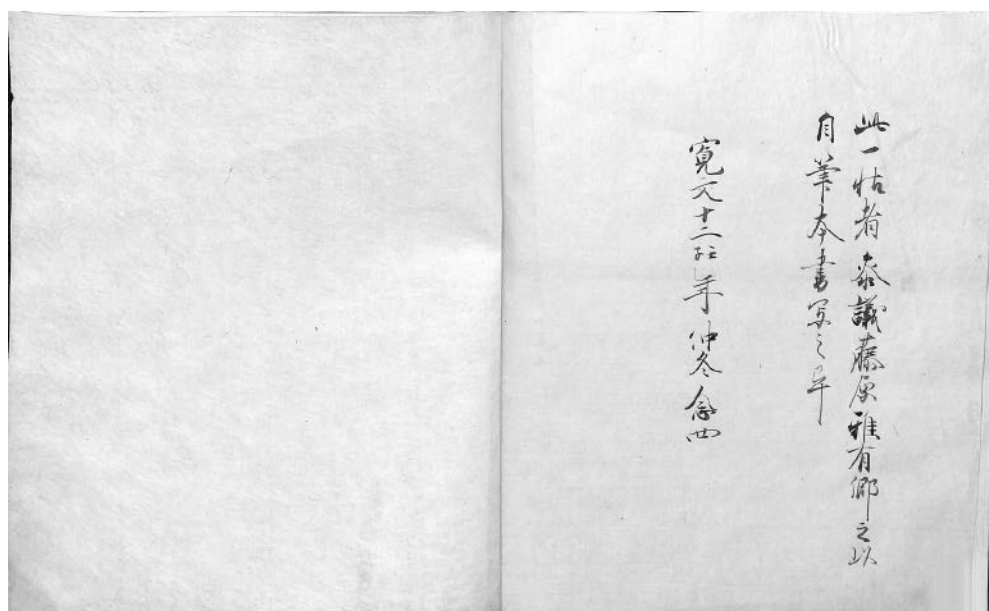 此一帖者参議藤原雅有卿之以
自筆本書写之畢
寛文十二壬子年仲冬念四